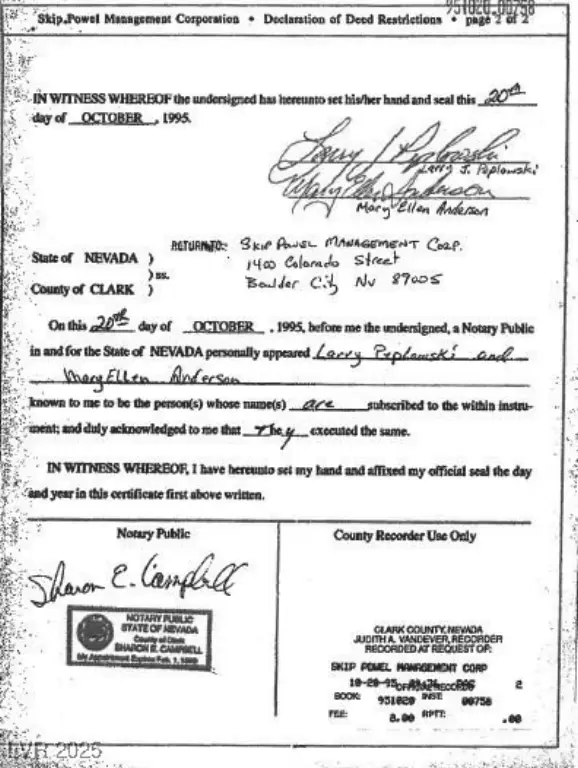 951020.00758
Skip Powel Management Corporation • Declaration of Deed Restrictions • page 2 of 2
IN WITNESS WHEREOF the undersigned has hereunto set his/her hand and seal this 20th
day of OCTOBER, 1995.
Larry J Peplowski
Larry J. Peplowski
Mary Ellen Anderson
Mary Ellen Anderson
RETURN TO: Skip Powel Management Corp.
State of NEVADA ) 1400 Colorado Street
)ss.
County of CLARK ) Boulder City Nv 89005
On this 20th day of OCTOBER, 1995, before me the undersigned, a Notary Public
in and for the State of NEVADA personally appeared Larry Peplowski and
Mary Ellen Anderson
known to me to be the person(s) whose name(s) are subscribed to the within instru-
ment; and duly acknowledged to me that They executed the same.
IN WITNESS WHEREOF, I have hereunto set my hand and affixed my official seal the day
and year in this certificate first above written.
Notary Public
Sharon E. Campbell
NOTARY PUBLIC
STATE OF NEVADA
County of Clark
SHARON E. CAMPBELL
My Appointment Expires Feb. 1,
County Recorder Use Only
CLARK COUNTY, NEVADA
JUDITH A. VANDEVER, RECORDER
RECORDED AT REQUEST OF:
SKIP POWEL MANAGEMENT CORP
10-20-95 2
OFFICIAL RECORDS
BOOK: 951020 INST: 00758
FEE: 8.00 RPTT: .00
LVR 2025